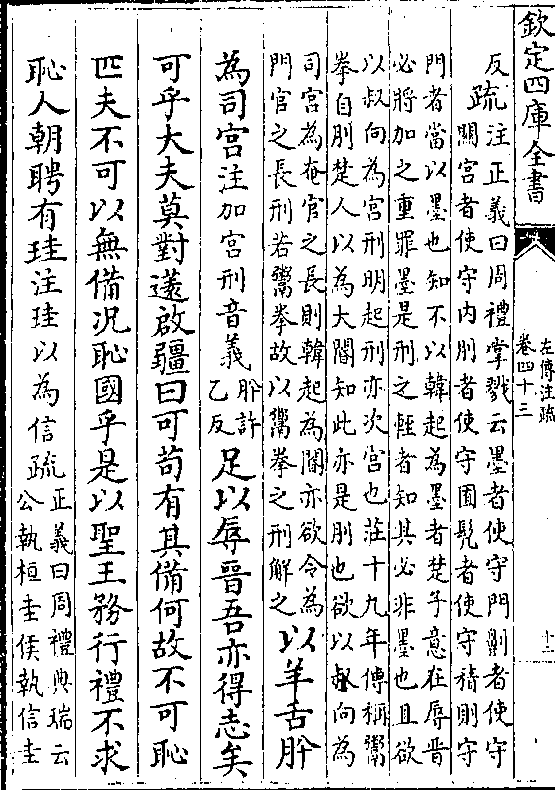 欽定四庫全書
左傳注疏
卷四十三
十二
反疏注正義曰周禮掌戮云墨者使守門劓者使守
關宮者使守內刖者使守囿髡者使守積則守
門者當以墨也知不以韓起為墨者楚子意在辱晉
必將加之重罪墨是刑之輕者知其必非墨也且欲
以叔向為宮刑明起刑亦次宮也莊十九年傳稱鬻
拳自刖楚人以為大閽知此亦是刖也欲以叔向為
司宮為奄官之長則韓起為閽亦欲令為
門官之長刑若鬻拳故以鬻拳之刑解之
以羊舌肸
為司宮注加宮刑音義
肸許
乙反
足以辱晉吾亦得志矣
可乎大夫莫對薳啟疆曰可苟有其備何故不可恥
匹夫不可以無備况恥國乎是以聖王務行禮不求
恥人朝聘有珪注珪以為信疏
正義曰周禮典瑞云
公執桓圭侯執信圭